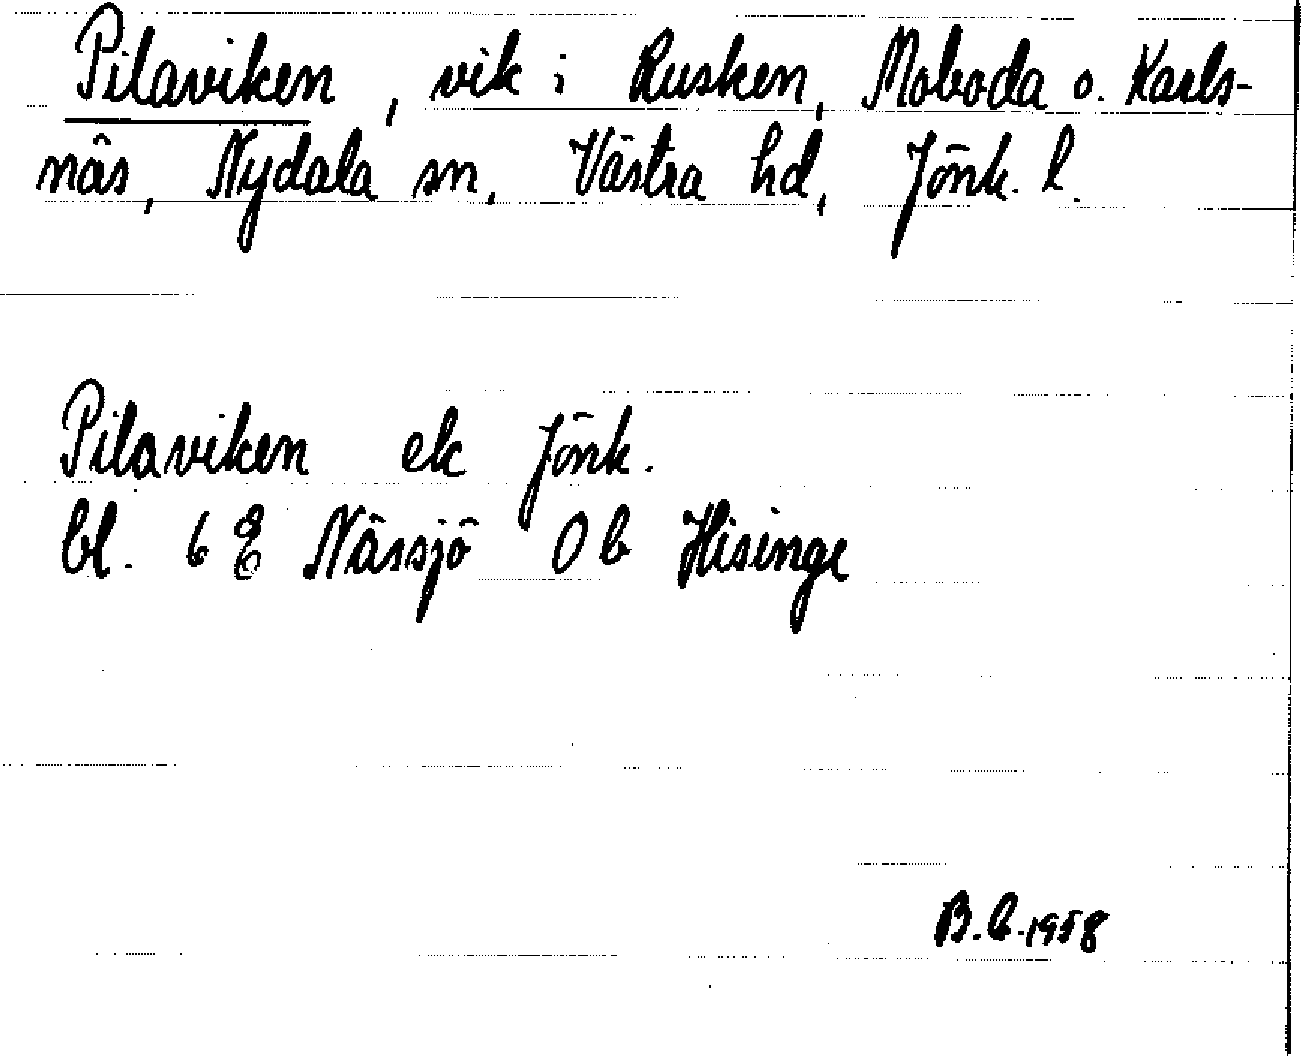 Pilaviken, vik i Rusken, Moboda o. Karls-
näs, Nydala sn, Västra hd, Jönk. l.
Pilaviken ek Jönk.
bl. 6 E Nässjö 0 b Hisinge
B. b. 1958